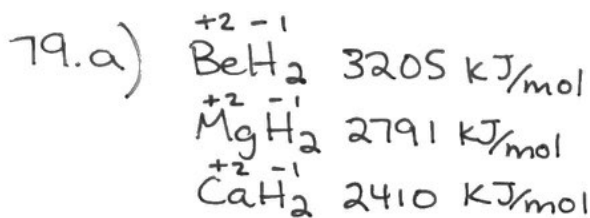 +2 -1
79.a) BeH2 3205 KJ/mol
+2 -1
MgH2 2791 KJ/mol
+2 -1
CaH2 2410 KJ/mol